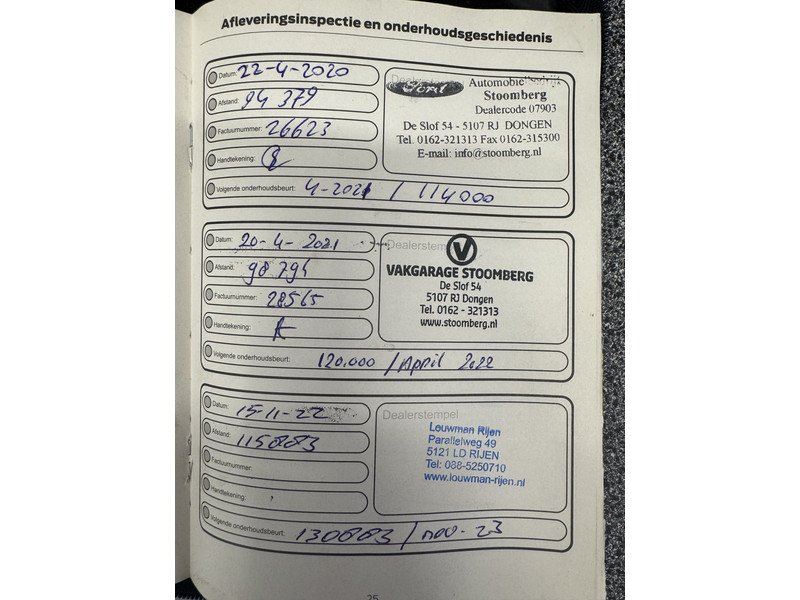 Afleveringsinspectie en onderhoudsgeschiedenis
Datum: 22-4-2020
Afstand: 94 379
Factuurnummer: 26623
Handtekening:
Volgende onderhoudsbeurt: 4-2021 / 114000
Dealerstempel
Ford
Automobielbedrijf
Stoomberg
Dealercode 07903
De Slof 54 - 5107 RJ DONGEN
Tel. 0162-321313 Fax 0162-315300
E-mail: info@stoomberg.nl
Datum: 20-4-2021
Afstand: 98 794
Factuurnummer: 28565
Handtekening:
Volgende onderhoudsbeurt: 120.000 / April 2022
Dealerstempel
V
VAKGARAGE STOOMBERG
De Slof 54
5107 RJ Dongen
Tel. 0162 - 321313
www.stoomberg.nl
Datum: 15-11-22
Afstand: 115883
Factuurnummer:
Handtekening:
Volgende onderhoudsbeurt: 130883 / nov-23
Dealerstempel
Louwman Rijen
Parallelweg 49
5121 LD RIJEN
Tel: 088-5250710
www.louwman-rijen.nl
25